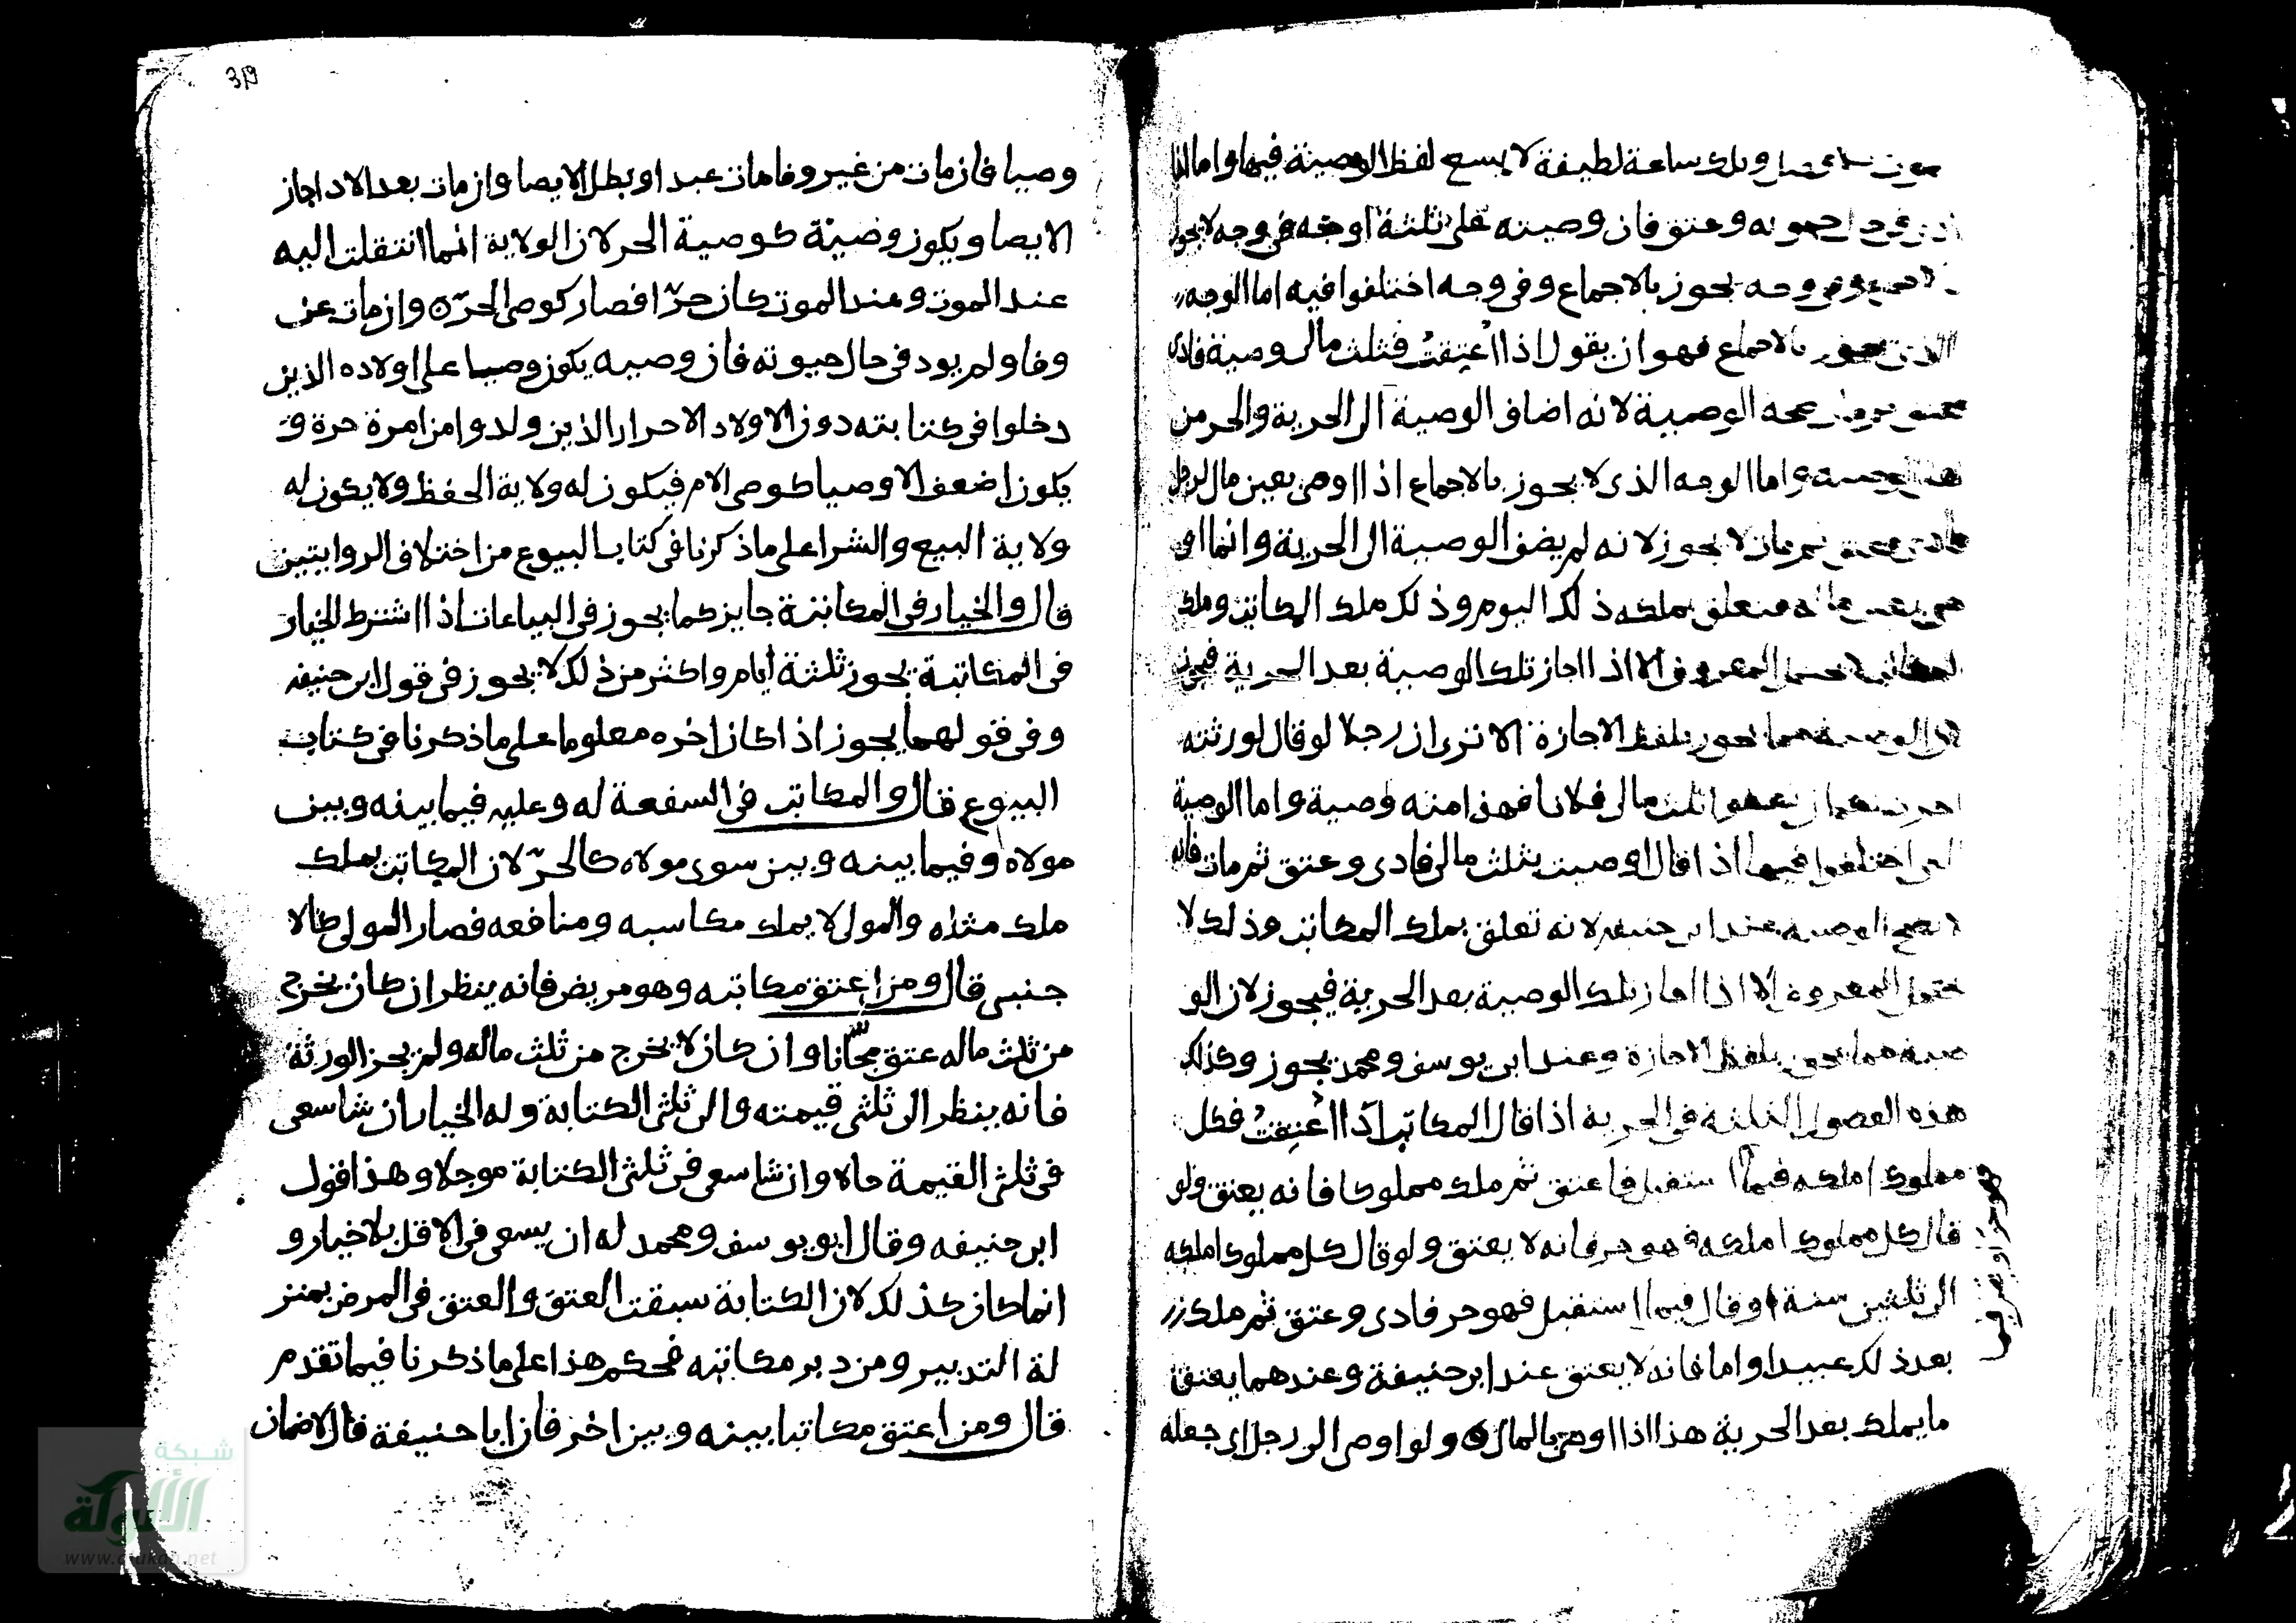 وتلك ساعة لطيفة لا يسع لفظ الوصية فيها واما اذا
وعتق فان وصيته على ثلثة اوجه في وجه لا يجوز
وجه يجوز بالاجماع وفي وجه اختلفوا فيه اما الوجه
الذي يجوز بالاجماع فهو ان يقول اذا اعتقت فثلث مالي وصية فادى
صحه الوصية لانه اضاف الوصية الى الحرية والحر من
واما الوجه الذي لا يجوز بالاجماع اذا اوصى بعين مال لرجل
فادى وعتق ثم مات لا يجوز لانه لم يضف الوصية الى الحرية وانما او
صى بعين ماله فيتعلق بملكه ذلك اليوم وذلك ملك المكاتب وملك
المكاتب لا يحتمل المعروف الا اذا اجاز تلك الوصية بعد الحرية فيجوز
لان الوصية مما يجوز بلفظ الاجازة الا ترى ان رجلا لو قال لورثته
اجزت لكم ان تعطوا ثلث مالي فلانا فهذا منه وصية واما الوصية
التي اختلفوا فيها اذا قال اوصيت بثلث مالي فادى وعتق ثم مات فانه
لا تصح الوصية عند ابي حنيفه لانه تعلق بملك المكاتب وذلك لا
يحتمل المعروف الا اذا اجاز تلك الوصية بعد الحرية فيجوز لان الو
صية مما يجوز بلفظ الاجازة وعند ابي يوسف ومحمد يجوز وكذلك
هذه الفصول الثلثة في الحرية اذا قال المكاتب اذا اعتقت فكل
مملوك املكه فيما استقبل فاعتق ثم ملك مملوكا فانه يعتق ولو
قال كل مملوك املكه فهو حر فانه لا يعتق ولو قال كل مملوك املكه
الى ثلثين سنة او قال فيما استقبل فهو حر فادى وعتق ثم ملك
بعد ذلك عبيدا واما فانه لا يعتق عند ابي حنيفة وعندهما يعتق
ما يملك بعد الحرية هذا اذا اوصى بالمال ولو اوصى الى رجل اي جعله
فهو حر او
319
وصيا فان مات من غير وفا مات عبدا وبطل الايصا وان مات بعد الادا جاز
الايصا ويكون وصيّة كوصية الحر لان الولاية انما انتقلت اليه
عند الموت وعند الموت كان حرّا فصار كوصي الحرّ وان مات عن
وفا ولم يود في حال حيوته فان وصيه يكون وصيا على اولاده الذين
دخلوا في كتابته دون الاولاد الاحرار الذين ولدوا من امرة حرة و
يكون اضعف الاوصيا كوصي الام فيكون له ولاية الحفظ ولا يكون له
ولاية البيع والشرا على ما ذكرنا في كتاب البيوع من اختلاف الروايتين
قال والخيار في المكاتبة جايز كما يجوز في البياعات اذا اشترط الخيار
في المكاتبة يجوز ثلثة ايام واكثر من ذلك لا يجوز في قول ابي حنيفه
وفي قولهما يجوز اذا كان اخره معلوما على ما ذكرنا في كتاب
البيوع قال والمكاتب في السفعة له وعليه فيما بينه وبين
مولاه وفيما بينه وبين سوى مولاه كالحرّ لان المكاتب يملك
ملك مثله والمولى لا يملك مكاسبه ومنافعه فصار المولى كالا
جنبي قال ومن اعتق مكاتبه وهو مريض فانه ينظر ان كان يخرج
من ثلث ماله عتق مجّانا وان كان لا يخرج من ثلث ماله ولم يجز الورثة
فانه ينظر الى ثلثي قيمته والى ثلثي الكتابة وله الخيار ان شا سعى
في ثلثي القيمة حالا وان شا سعى في ثلثي الكتابة موجلا وهذا قول
ابي حنيفه وقال ابو يوسف ومحمد له ان يسعى في الاقل بلا خيار و
انما كان كذلك لان الكتابة سبقت العتق والعتق في المرض بمنز
لة التدبير ومن دبر مكاتبه فحكم هذا على ما ذكرنا فيما تقدم
قال ومن اعتق مكاتبا بينه وبين اخر فان ابا حنيفة قال لا ضمان
شبكة
الألوكة
www.alukah.net